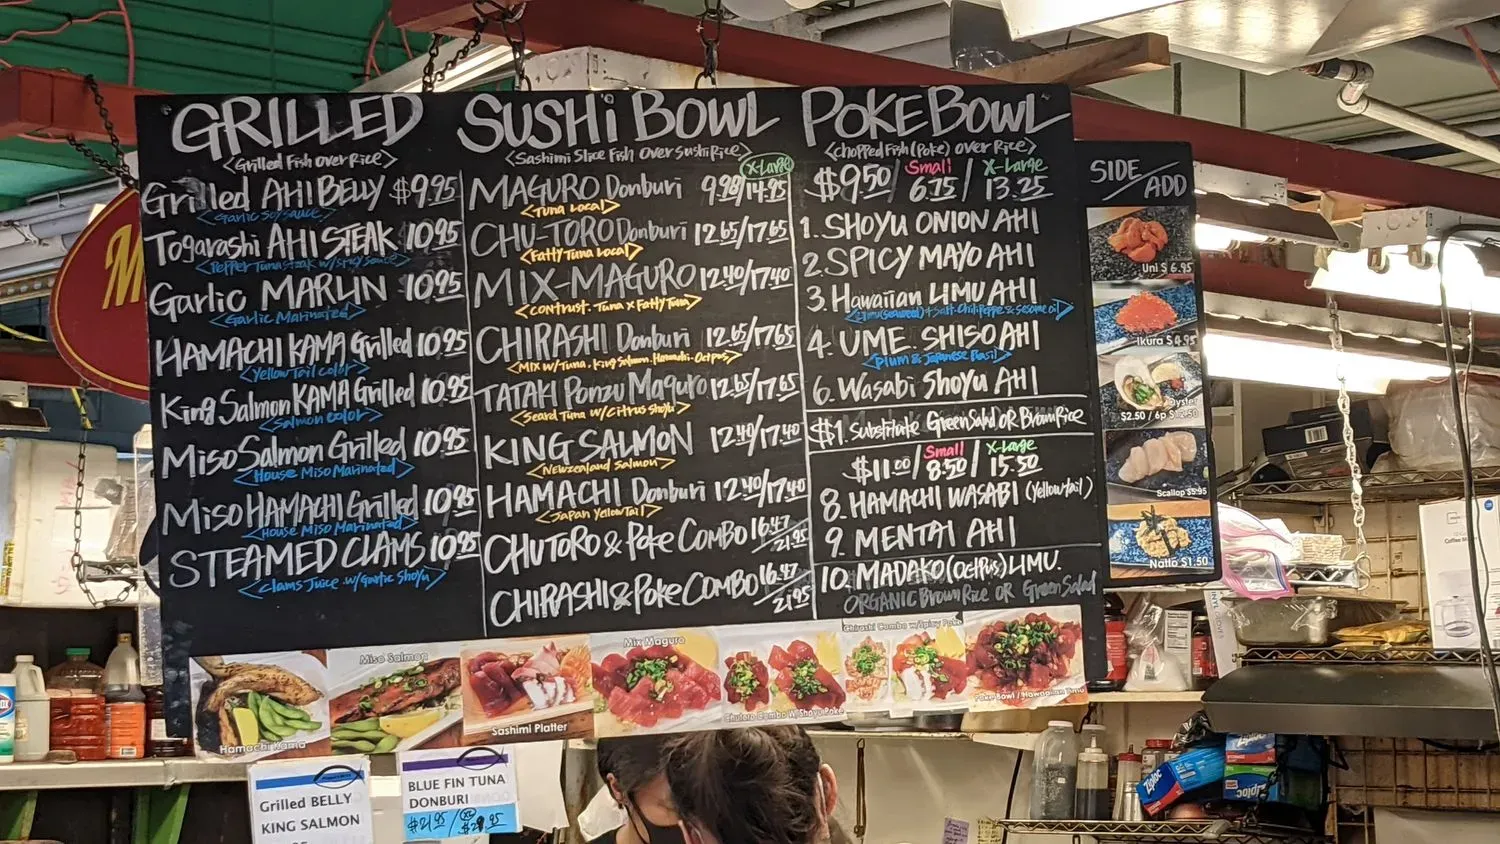 GRILLED
<Grilled Fish Over Rice>
Grilled AHI BELLY $9.95
<Garlic Soy Sauce>
Togarashi AHI STEAK 10.95
<Pepper Tuna Steak w/Spicy Sauce>
Garlic MARLIN 10.95
<Garlic Marinated>
HAMACHI KAMA Grilled 10.95
<Yellow Tail Color>
King Salmon KAMA Grilled 10.95
<Salmon Color>
Miso Salmon Grilled 10.95
<House Miso Marinated>
Miso HAMACHI Grilled 10.95
<House Miso Marinated>
STEAMED CLAMS 10.95
<Clams Juice w/Garlic Shoyu>
SUSHi BOWL
<Sashimi Slice Fish Over Sushi Rice>
X-Large
MAGURO Donburi 9.98/14.95
<Tuna Local>
CHU-TORO Donburi 12.65/17.65
<Fatty Tuna Local>
MIX-MAGURO 12.40/17.40
<Contrast. Tuna x Fatty Tuna>
CHIRASHI Donburi 12.65/17.65
<Mix w/Tuna, King Salmon, Hamachi, Octpus>
TATAKI Ponzu Maguro 12.65/17.65
<Seard Tuna w/Citrus Shoyu>
KING SALMON 12.40/17.40
<Newzealand Salmon>
HAMACHI Donburi 12.40/17.40
<Japan Yellow Tail>
CHUTORO & Poke COMBO 16.47/21.95
CHIRASHI & Poke COMBO 16.47/21.95
POKE BOWL
<Chopped Fish (Poke) over Rice>
Small X-Large
$9.50/ 6.75 / 13.25
1. SHOYU ONION AHI
2. SPICY MAYO AHI
3. Hawaiian LIMU AHI
4. UME SHISO AHI
<Plum & Japanese Basil>
6. Wasabi Shoyu AHI
$1. Substitute Green Salad OR Brown Rice
Small X-Large
$11.00/ 8.50 / 15.50
8. HAMACHI WASABI (Yellowtail)
9. MENTAI AHI
10. MADAKO (Octpus) LIMU.
ORGANIC Brown Rice OR Green Salad
SIDE/ADD
Uni $ 6.95
Ikura $ 4.95
Oyster
$2.50 / 6p $12.50
Scallop $5.95
Natto $1.50
Hamachi Kama
Miso Salmon
Sashimi Platter
Mix Maguro
Chutoro Combo W/ Shoyu Poke
Chirashi Combo w/Spicy Poke
Poke Bowl / Hawaiian Limu
M
Grilled BELLY
KING SALMON
BLUE FIN TUNA
DONBURI
Ziploc
Ziploc
Ziploc